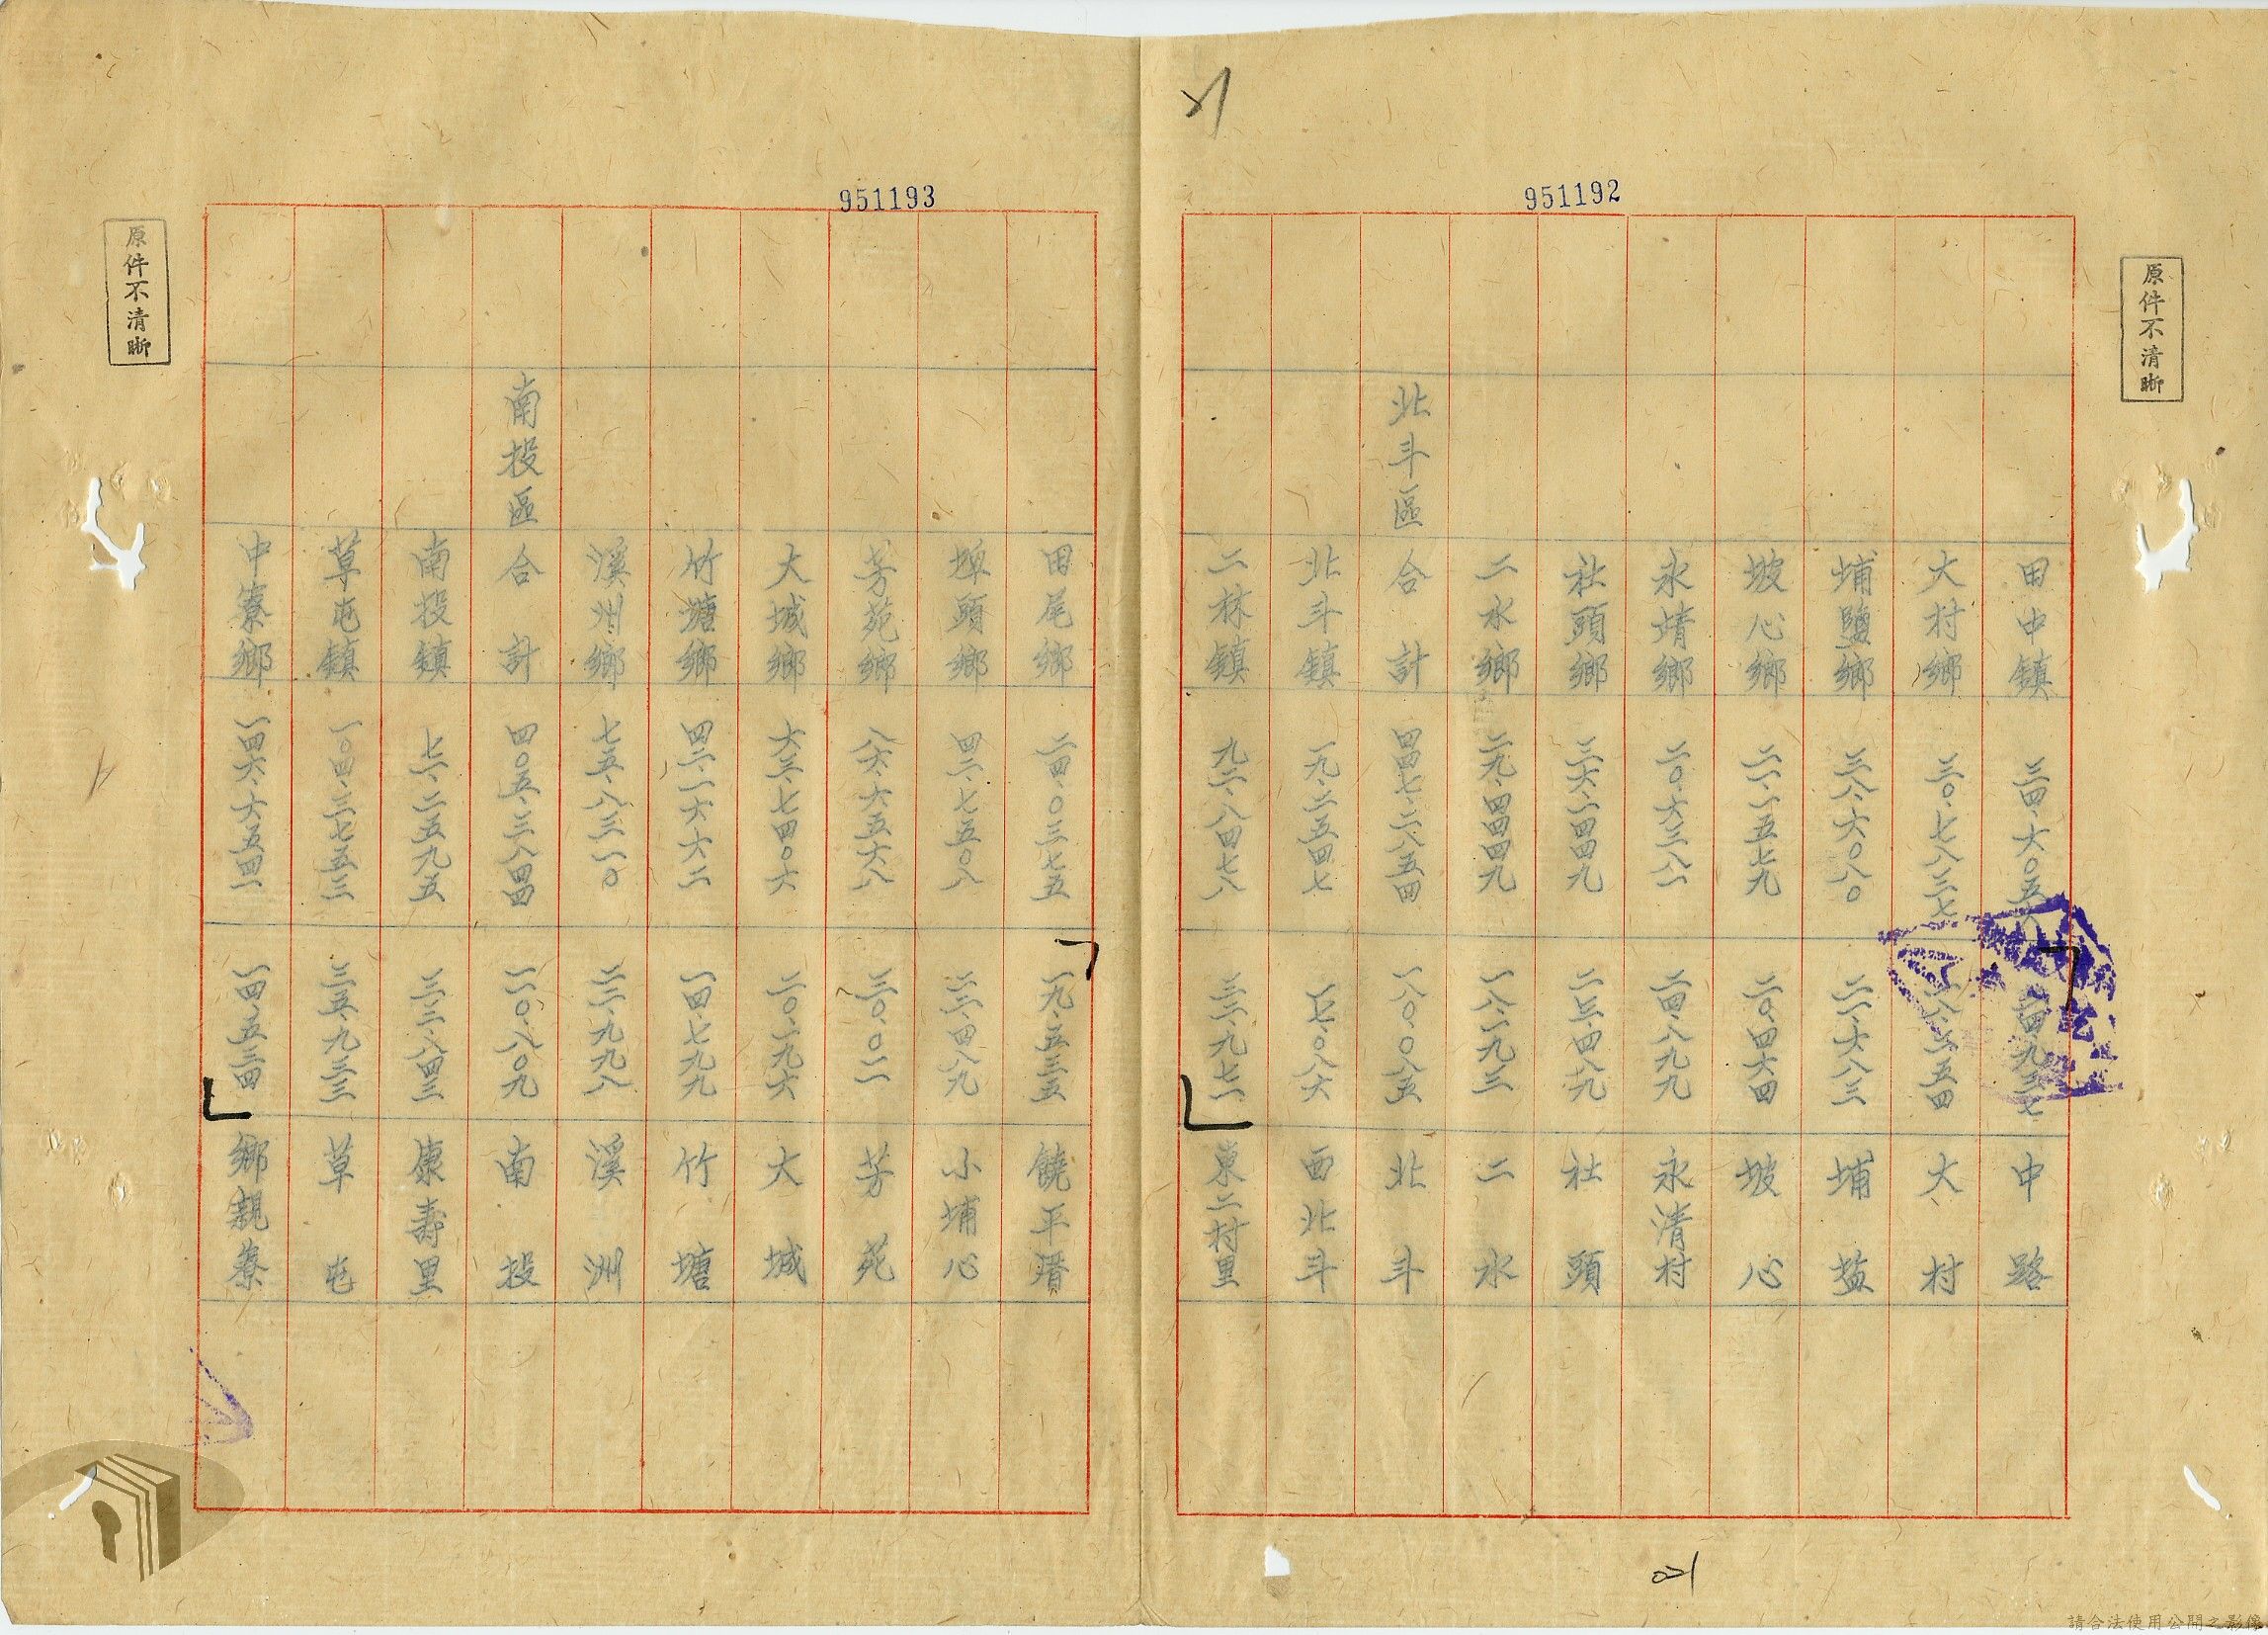 951192
原件不清晰
田中鎮 三四·六〇五八 二四九三七 中路
大村鄉 三〇·七八三七 一八·六五四 大村
埔鹽鄉 三八·六〇八〇 二一·六八三 埔盐
坡心鄉 二一·一五七九 二〇·四六四 坡心
永靖鄉 二〇·六三八一 二四·八九九 永清村
社頭鄉 三六·一四四九 二三·四八九 社頭
二水鄉 二九·四四四九 一八·一九三 二水
北斗區 合計 四四七·二八五四 一八〇·〇八五 北斗
北斗鎮 一九·二五四七 一七·〇八六 西北斗
二林鎮 九二·八四七八 三三·九七一 東二村里
951193
田尾鄉 二四·〇三七五 一九·五三五 饒平厝
埤頭鄉 四二·七五〇八 二二·四八九 小埔心
芳苑鄉 八六·六五六八 三〇·〇一一 芳苑
大城鄉 六三·七四〇六 二〇·一九六 大城
竹塘鄉 四二·一六六二 一四·七九九 竹塘
溪州鄉 七五·八三一〇 二一·九九八 溪洲
南投區 合計 四〇五·三八四四 一一〇·八〇九 南投
南投鎮 七一·二五九五 三二·八四三 康壽里
草屯鎮 一〇四·三七五三 三五·九三三 草屯
中寮鄉 一四六·六五四一 一四·五三四 鄉親寮
原件不清晰
請合法使用公開之影像